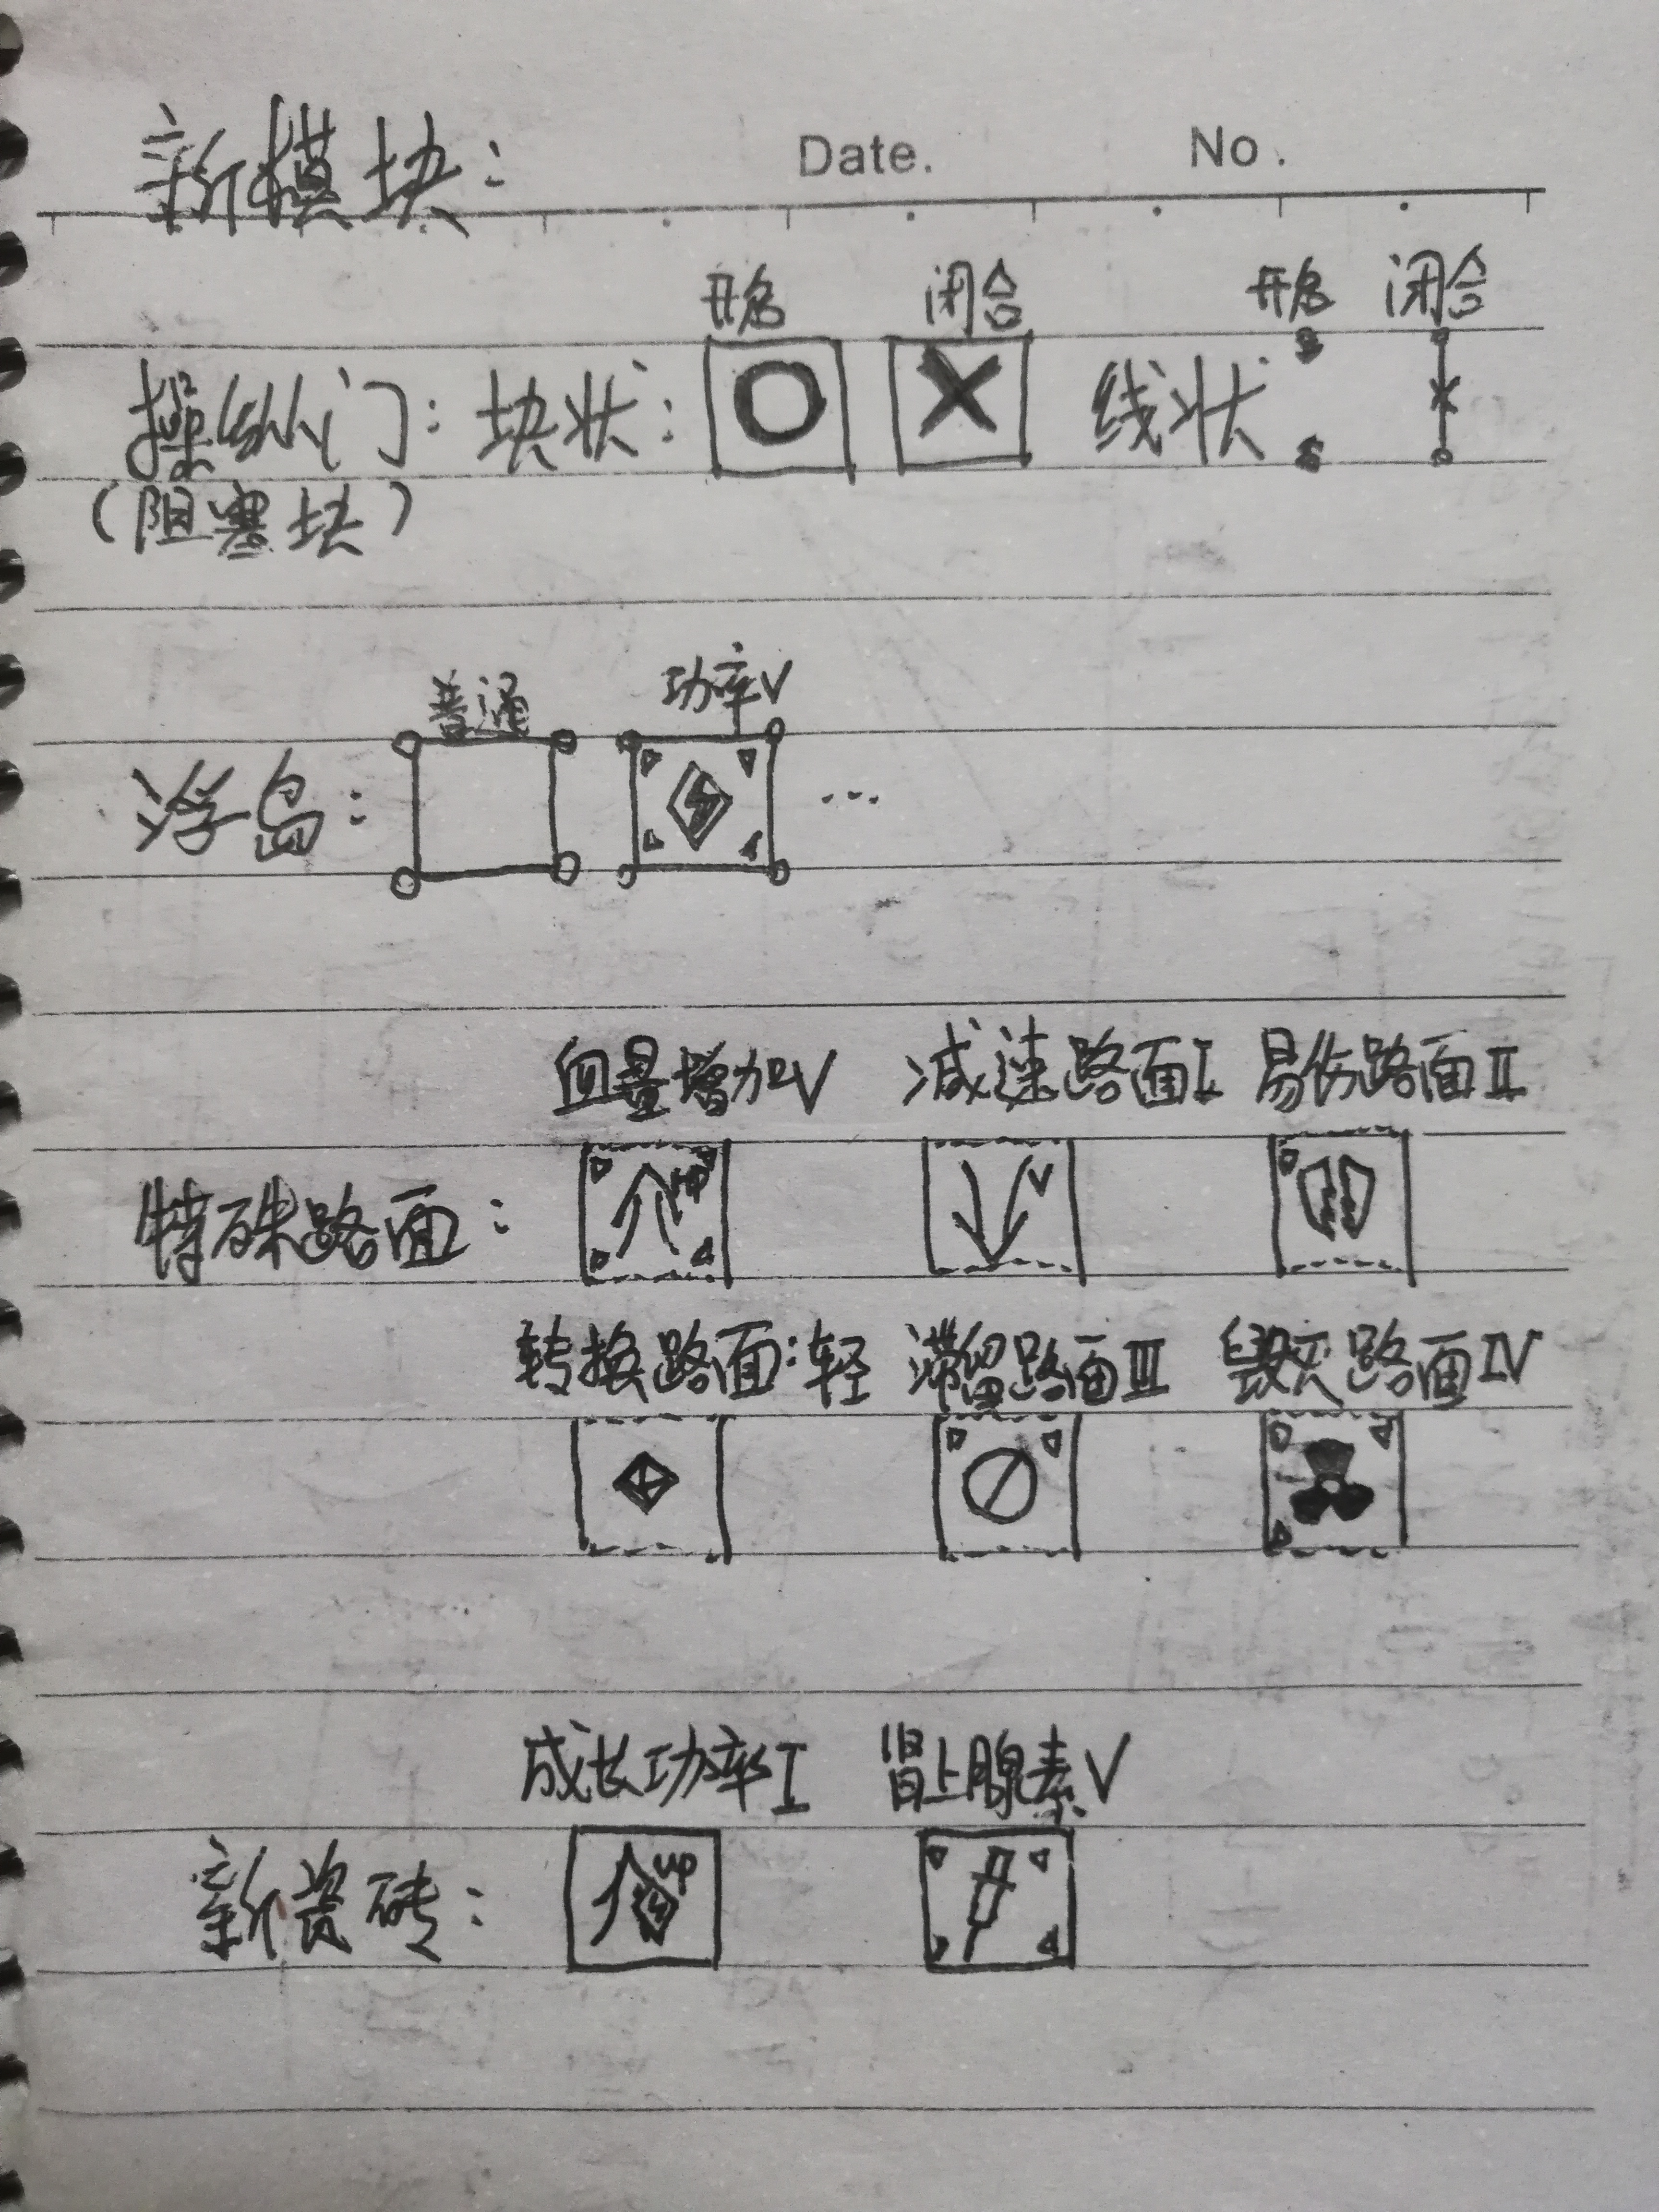 新模块:
Date. No.
开启 闭合 开启 闭合
操纵门: 块状: 线状:
(阻塞块)
普通 功率V
浮岛: ...
血量增加V 减速路面I 易伤路面II
HP V
特殊路面:
转换路面:轻 滞留路面III 毁灭路面IV
成长功率I 肾上腺素V
up
新瓷砖: